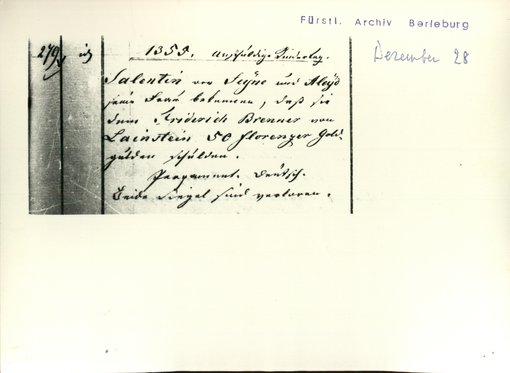 Fürstl. Archiv Berleburg
Dezember 28
279
1353. unschuldige Kindertag.
Salentin von Seyne und Aleyd
seine Frau bekennen, daß sie
dem Friderich Brenner von
Lainstein 50 florenzer Gold-
gülden schulden.
Pergament. Deutsch.
Beide Siegel sind verloren.